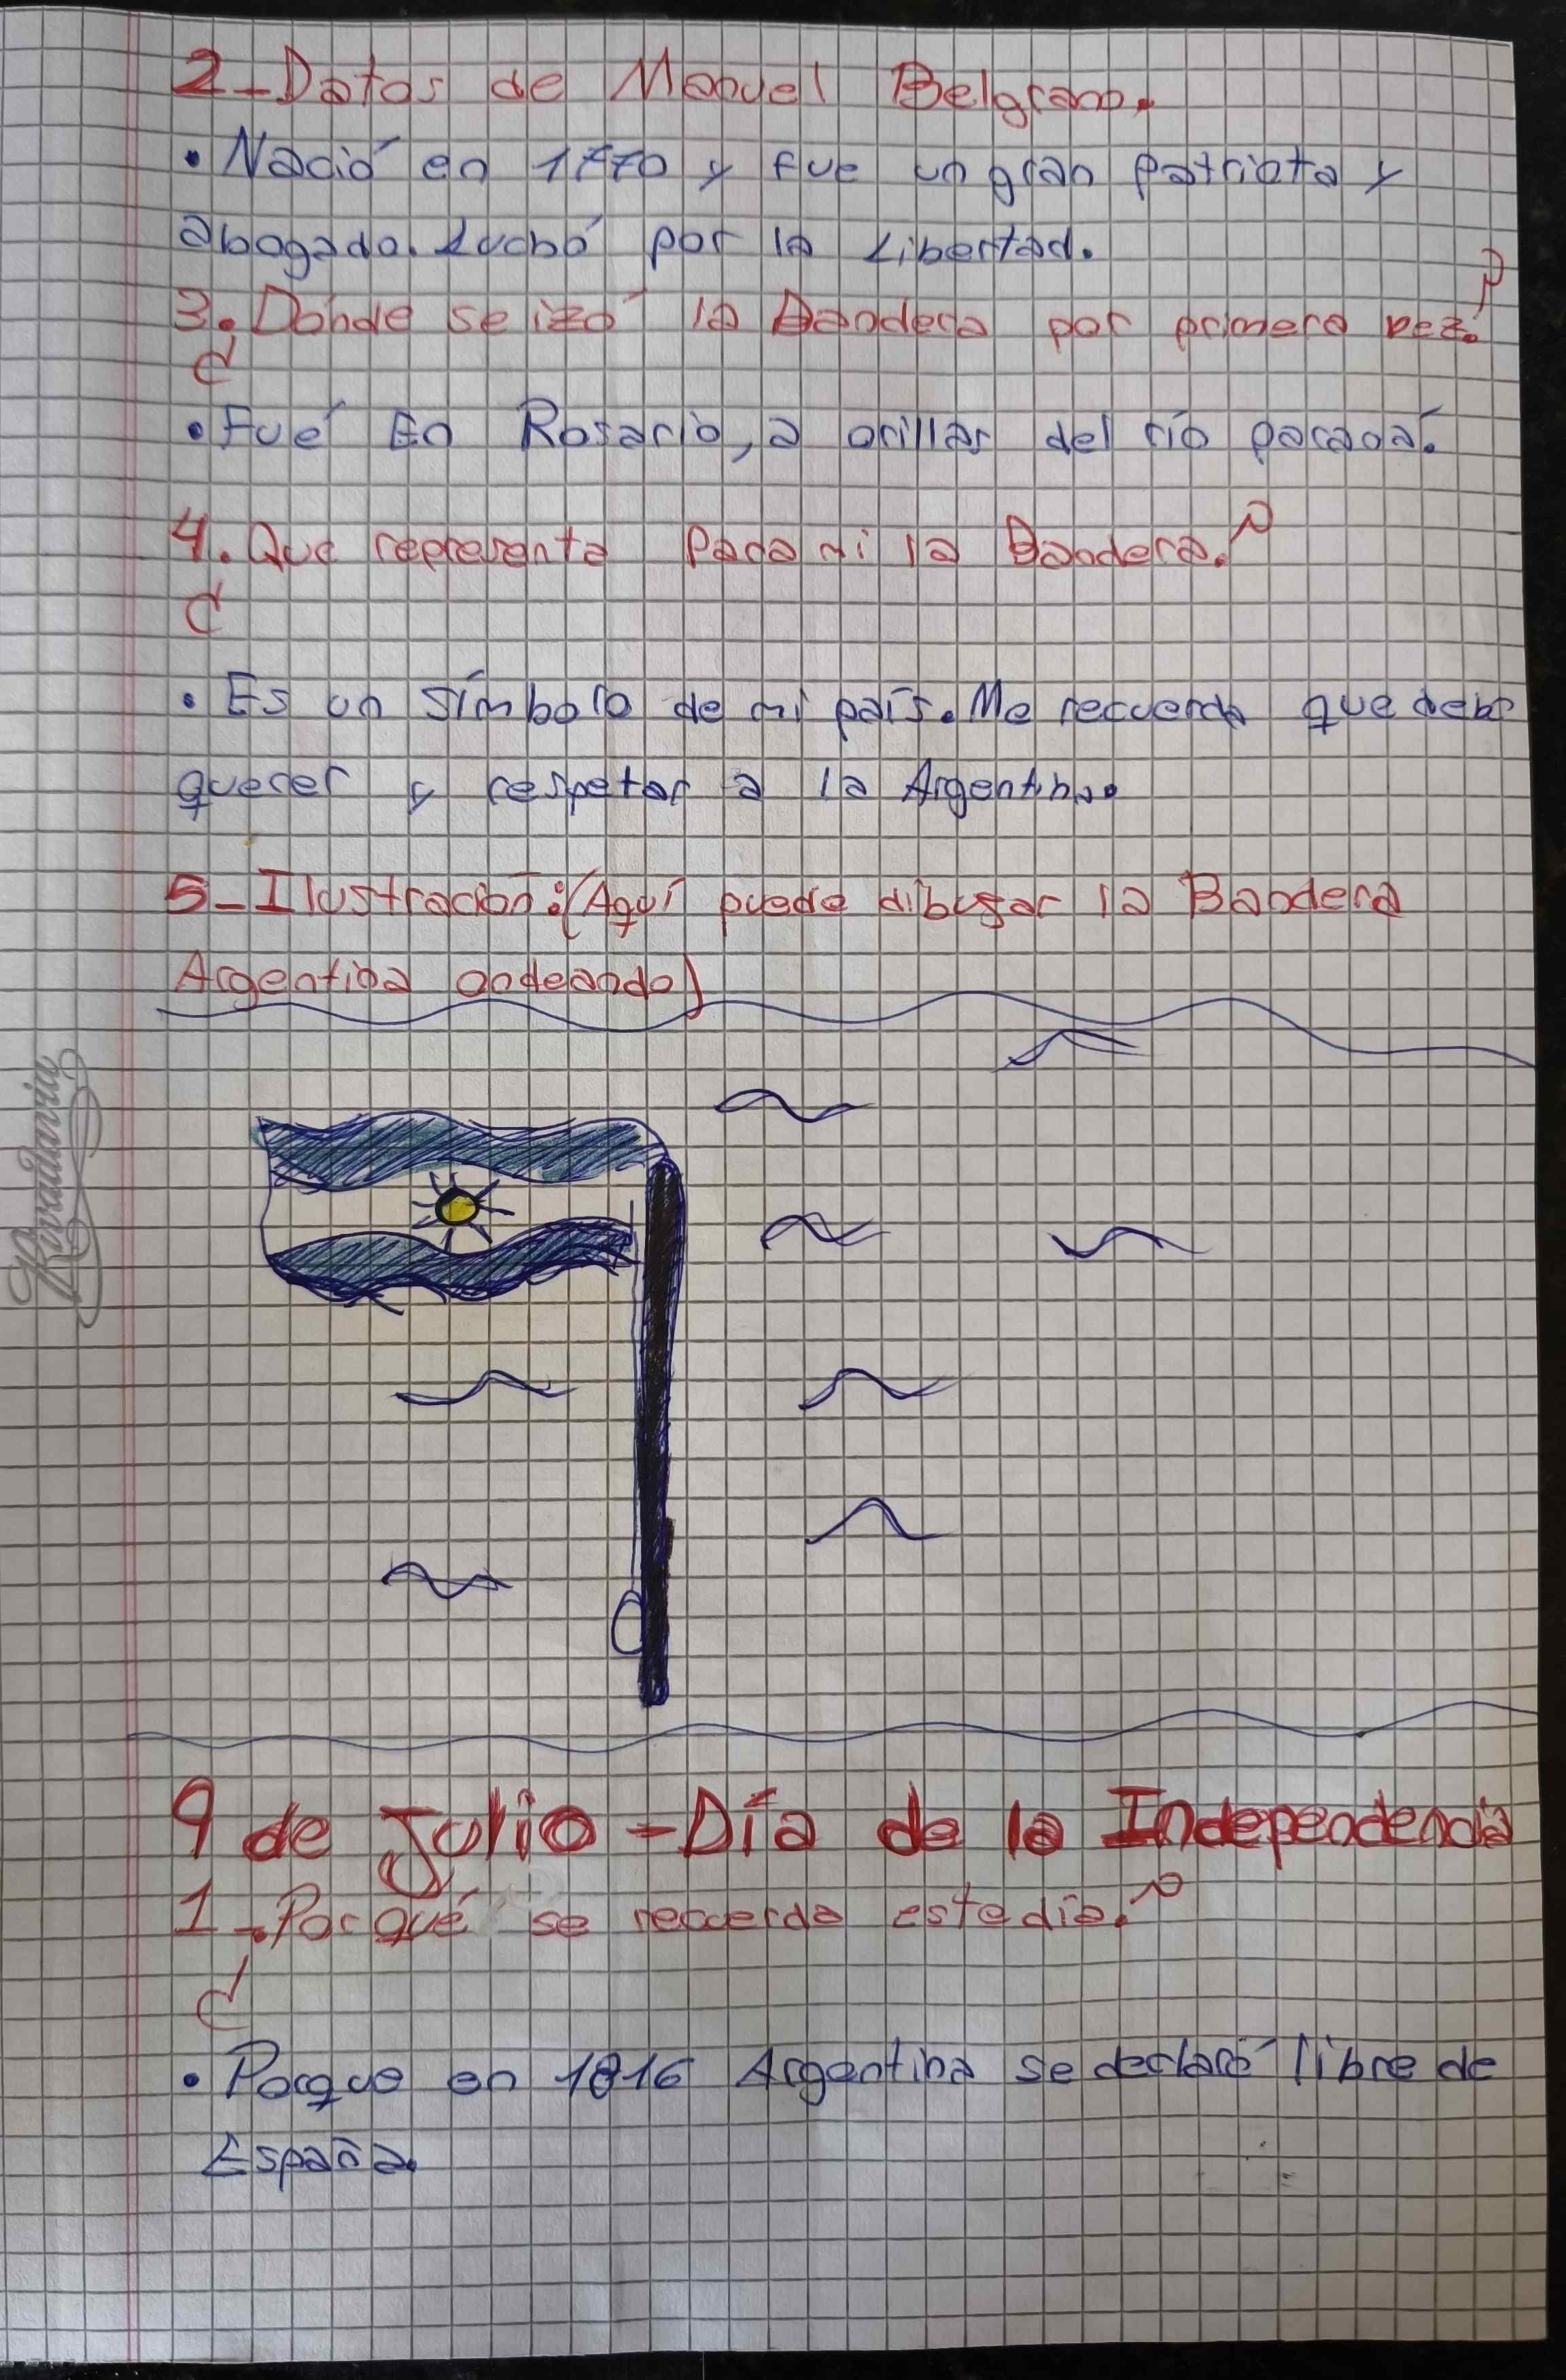 2-Datos de Manuel Belgrano.
• Nació en 1770 y fue un gran patriota y
abogado. Luchó por la Libertad.
3. Dónde se izó la Bandera por primera vez.?
¿
• Fué En Rosario, a orillas del río paraná.
4. Que representa Para mi la Bandera.?
¿
• Es un símbolo de mi país. Me recuerda que debo
querer y respetar a la Argentina.
5-Ilustración: (Aquí puede dibujar la Bandera
Argentina ondeando)
Rivadavia
9 de Julio - Día de la Independencia
1-. Por qué se recuerda este dia.?
¿
• Porque en 1816 Argentina se declaró libre de
España.